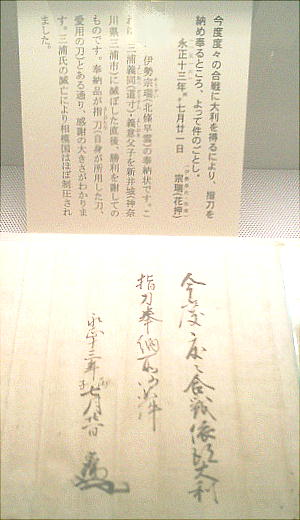 今度度々の合戦に大利を得るにより、指刀を
納め奉るところ、よって件のごとし。
永正十三年 七月廿一日 宗瑞(花押)
伊勢宗瑞(北條早雲)の奉納状です。こ
れは、三浦義同(道寸)・義意父子を新井城(神奈
川県三浦市)に滅ぼした直後、勝利を謝しての
ものです。奉納品が指刀(自身が所用した刀、
愛用の刀)とある通り、感謝の大きさがわかりま
す。三浦氏の滅亡により相模国はほぼ制圧され
ました。
今度度々合戦依得大利
指刀奉納所仍如件
永正十三年 七月廿一日